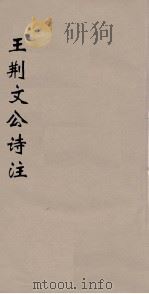 王荆文公诗注
http://mtoou.info